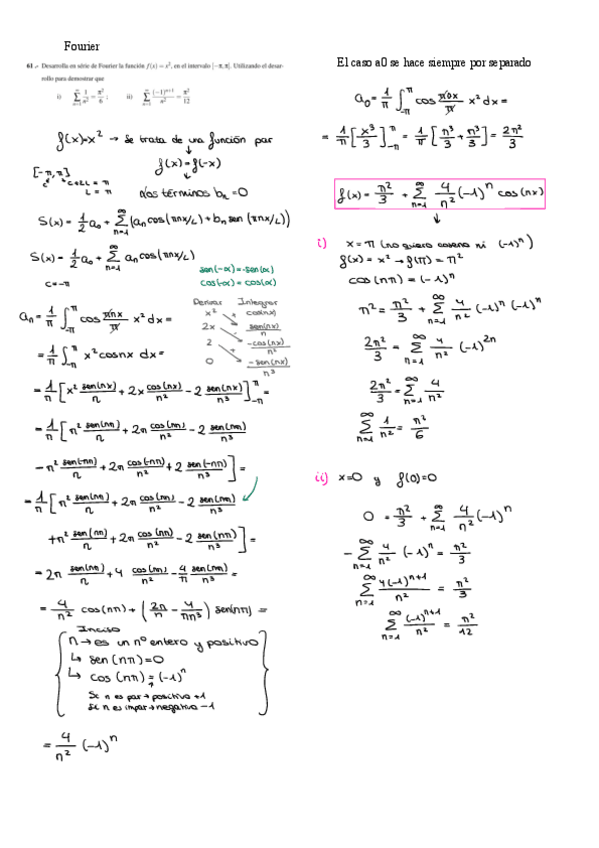 Fourier
61.- Desarrolla en série de Fourier la función f(x) = x², en el intervalo [−π, π]. Utilizando el desar-
rollo para demostrar que
i) ∑_{n=1}^{∞} 1/n² = π²/6 ; ii) ∑_{n=1}^{∞} (−1)^{n+1}/n² = π²/12
f(x)=x² → Se trata de una función par
f(x)=f(-x)
[-π, π]
c c+2L = π
L = π
Nos términos bₙ=0
S(x) = 1/2 a₀ + ∑_{n=1}^{∞} (aₙ cos(πnx/L) + bₙ sen(πnx/L))
S(x) = 1/2 a₀ + ∑_{n=1}^{∞} aₙ cos(πnx/L)
c=-π
sen(-α)=-sen(α)
cos(-α)=cos(α)
aₙ = 1/π ∫_{-π}^{π} cos πnx/π x² dx =
Derivar Integrar
x² cos(nx)
2x sen(nx)/n
2 -cos(nx)/n²
0 -sen(nx)/n³
= 1/π ∫_{-π}^{π} x² cosnx dx =
= 1/π [x² sen(nx)/n + 2x cos(nx)/n² - 2 sen(nx)/n³]_{-π}^{π} =
= 1/π [π² sen(nπ)/n + 2π cos(nπ)/n² - 2 sen(nπ)/n³
- π² sen(-nπ)/n + 2π cos(-nπ)/n² + 2 sen(-nπ)/n³] =
= 1/π [π² sen(nπ)/n + 2π cos(nπ)/n² - 2 sen(nπ)/n³
+ π² sen(nπ)/n + 2π cos(nπ)/n² - 2 sen(nπ)/n³] =
= 2π sen(nπ)/n + 4 cos(nπ)/n² - 4/π sen(nπ)/n³ =
= 4/n² cos(nπ) + (2π/n - 4/πn³) sen(nπ) =
Inciso
n → es un nº entero y positivo
↳ sen(nπ)=0
↳ cos(nπ) = (-1)ⁿ
Si n es par → positivo +1
Si n es impar → negativo -1
= 4/n² (-1)ⁿ
El caso a0 se hace siempre por separado
a₀ = 1/π ∫_{-π}^{π} cos π0x/π x² dx =
= 1/π [x³/3]_{-π}^{π} = 1/π [π³/3 + π³/3] = 2π²/3
f(x) = π²/3 + ∑_{n=1}^{∞} 4/n² (-1)ⁿ cos(nx)
i) x = π (no quiero coseno ni (-1)ⁿ)
f(x) = x² → f(π) = π²
cos(nπ) = (-1)ⁿ
π² = π²/3 + ∑_{n=1}^{∞} 4/n² (-1)ⁿ (-1)ⁿ
2π²/3 = ∑_{n=1}^{∞} 4/n² (-1)²ⁿ
2π²/3 = ∑_{n=1}^{∞} 4/n²
∑_{n=1}^{∞} 1/n² = π²/6
ii) x=0 y f(0)=0
0 = π²/3 + ∑_{n=1}^{∞} 4/n² (-1)ⁿ
-∑_{n=1}^{∞} 4/n² (-1)ⁿ = π²/3
∑_{n=1}^{∞} 4(-1)^{n+1}/n² = π²/3
∑_{n=1}^{∞} (-1)^{n+1}/n² = π²/12